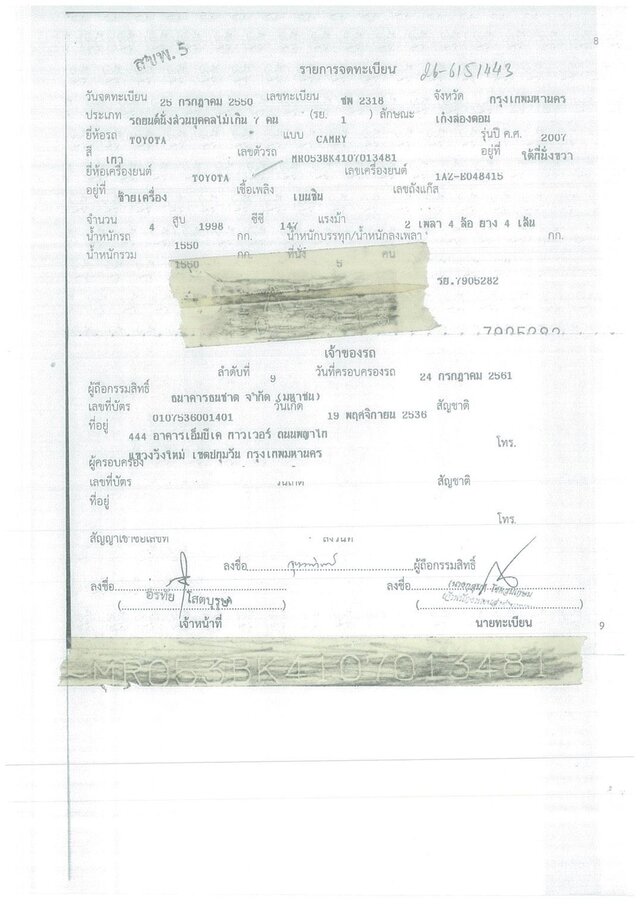 8
สขพ. 5
รายการจดทะเบียน 26-6151443
วันจดทะเบียน 25 กรกฎาคม 2550 เลขทะเบียน ชพ 2318 จังหวัด กรุงเทพมหานคร
ประเภท รถยนต์นั่งส่วนบุคคลไม่เกิน 7 คน (รย. 1 ) ลักษณะ เก๋งสองตอน
ยี่ห้อรถ TOYOTA แบบ CAMRY รุ่นปี ค.ศ. 2007
สี เทา เลขตัวรถ MR053BK4107013481 อยู่ที่ ใต้ที่นั่งขวา
ยี่ห้อเครื่องยนต์ TOYOTA เลขเครื่องยนต์ 1AZ-E048415
อยู่ที่ ซ้ายเครื่อง เชื้อเพลิง เบนซิน เลขถังแก๊ส
จำนวน 4 สูบ 1998 ซีซี 147 แรงม้า 2 เพลา 4 ล้อ ยาง 4 เส้น
น้ำหนักรถ 1550 กก. น้ำหนักบรรทุก/น้ำหนักลงเพลา กก.
น้ำหนักรวม 1550 กก. ที่นั่ง 5 คน
รย.7905282
7905282
เจ้าของรถ
ลำดับที่ 9 วันที่ครอบครองรถ 24 กรกฎาคม 2561
ผู้ถือกรรมสิทธิ์ ธนาคารธนชาต จำกัด (มหาชน)
เลขที่บัตร 0107536001401 วันเกิด 19 พฤศจิกายน 2536 สัญชาติ
ที่อยู่ 444 อาคารเอ็มบีเค ทาวเวอร์ ถนนพญาไท
แขวงวังใหม่ เขตปทุมวัน กรุงเทพมหานคร โทร.
ผู้ครอบครอง
เลขที่บัตร วันเกิด สัญชาติ
ที่อยู่
โทร.
สัญญาเช่าซื้อเลขที่ ลงวันที่
ลงชื่อ ผู้ถือกรรมสิทธิ์
ลงชื่อ ลงชื่อ
( โสตบุรุษ )
เจ้าหน้าที่ นายทะเบียน
9
MR053BK4107013481